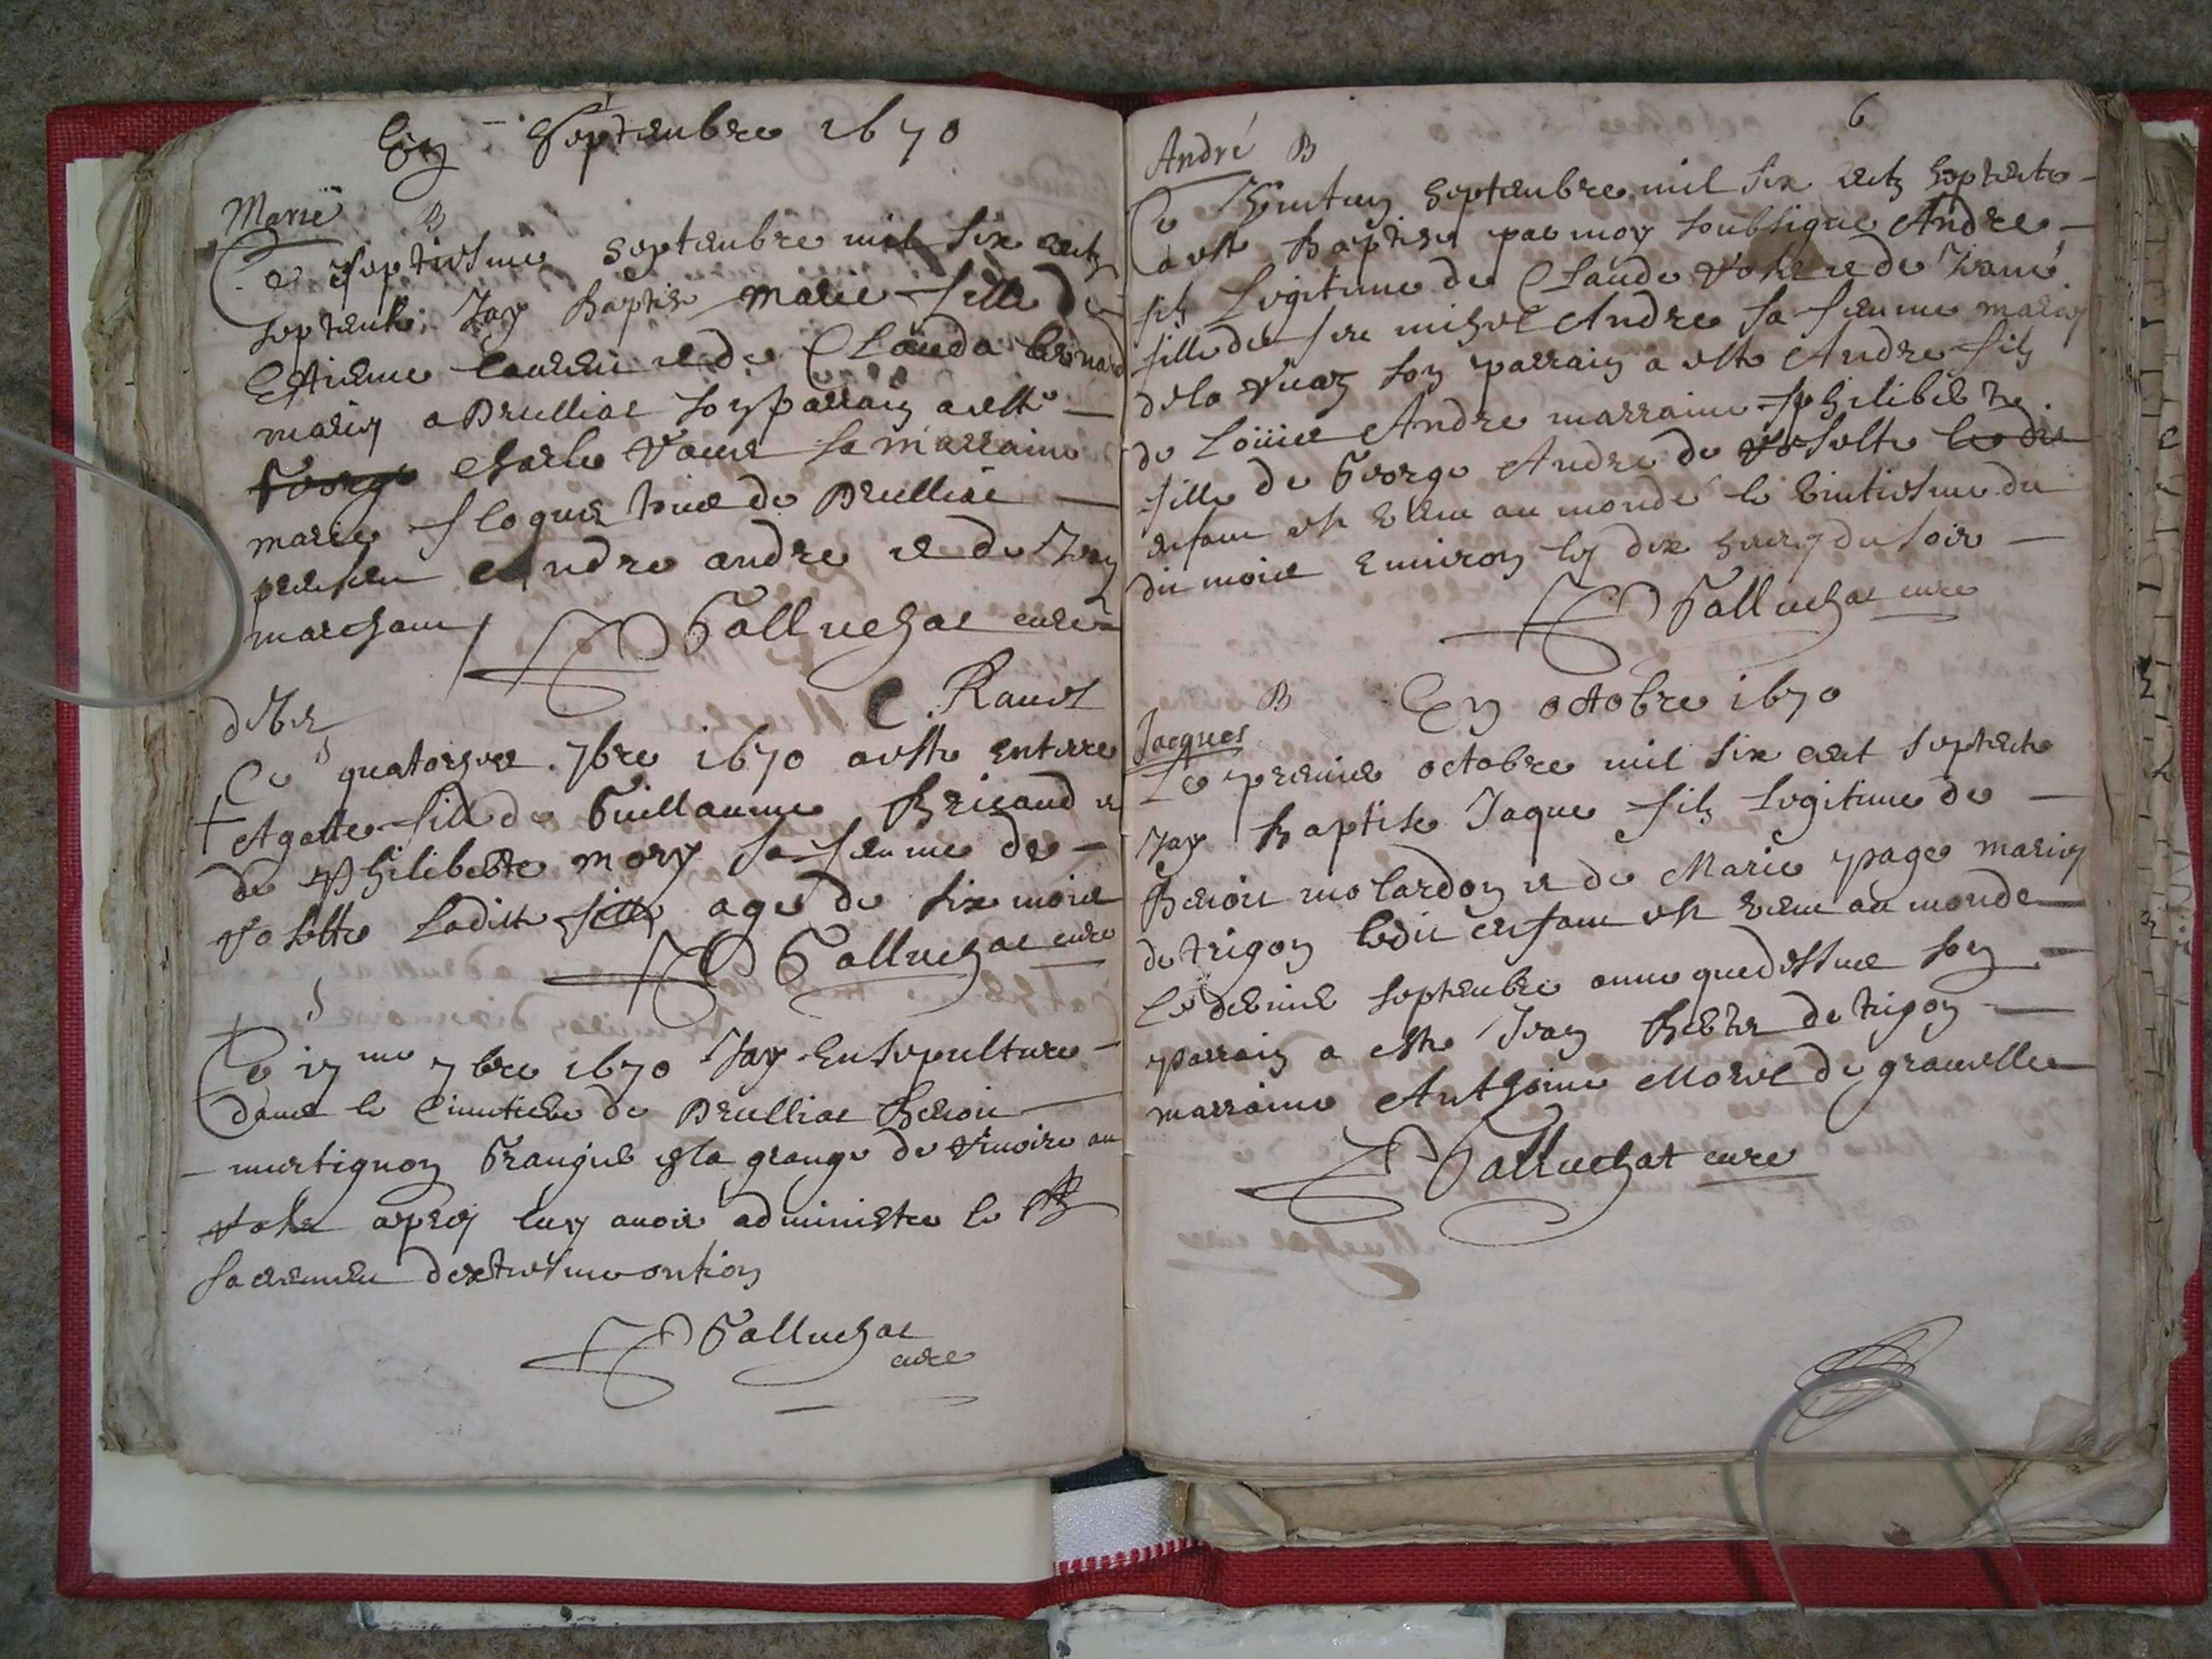 En Septembre 1670
Marie B
Ce septiesme septembre mil six cents
septente Jay baptise marie fille de
Estienne et de Clauda bernard
mariez a Druillat son parrain a este
George charle sa marraine
marie de Druillat
presen andre andre et de Jean
marchant Galluchat cure
C. Ravet
d 7bre
S
Ce quatorze 7bre 1670 a este enterre
Agatte fille de Guillaume Brigaud et
de Philiberte mory sa femme de
Voselte Laditte fille age de six mois
Galluchat cure
S
Ce 17me 7bre 1670 Jay Ensepulture
dans le Cimetiere de Druillat Benoit
murtignon Grangier a la grange de au
apres luy avoir administre le St
sacremen dextresme ontion
Galluchat
cure
6
André B
Ce Septembre mil six cents septente
a este Baptise par moy soubsigne Andre
fils Legitime de Claude et de Jeanne
fille de feu michel Andre sa femme mariez
de la son parrain a este Andre fils
de Loüis Andre marraine philiberte
fille de George Andre de Voselte ledit
enfant est venu au monde le vintiesme du
dit mois environ les dix heures du soir
Galluchat cure
B En octobre 1670
Jacques
Le premier octobre mil six cent septente
Jay Baptise Jaque fils Legitime de
Benoit molardon et de Marie page mariez
de trigon ledit enfant est venu au monde
le dernier septembre anne que dessus son
parrain a este Jean de trigon
marraine Anthoine Morel de gravelles
Galluchat cure